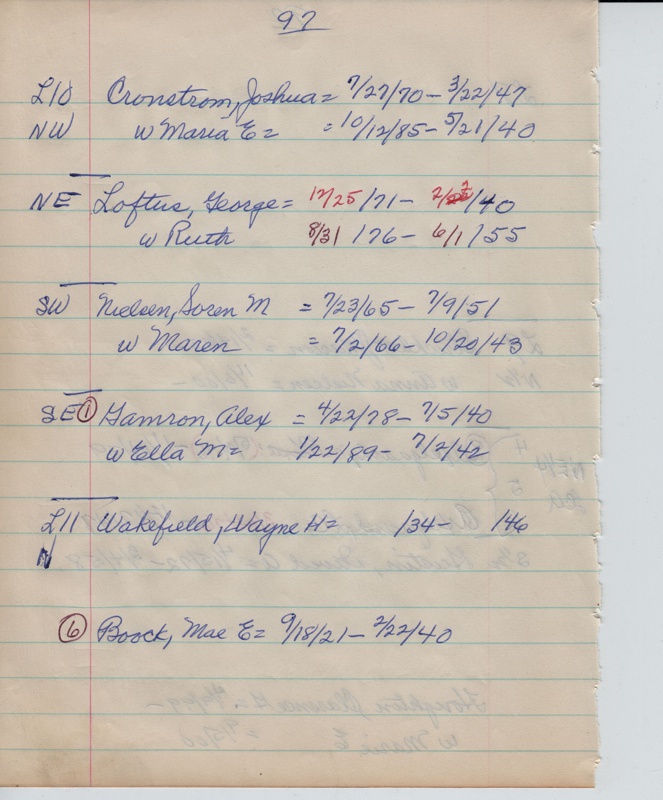 97
L10 Cronstrom, Joshua = 7/27/70 - 3/22/47
NW w Maria E = = 10/12/85 - 5/21/40
NE Loftus, George = 12/25/71 - 2/2/40
w Ruth 8/31/76 - 6/1/55
SW Nielsen, Soren M = 7/23/65 - 7/9/51
w Maren = 7/2/66 - 10/20/43
SE ① Gamron, Alex = 4/22/78 - 7/5/40
w Ella M = 1/22/89 - 7/2/42
L11 Wakefield, Wayne H = /34 - /46
N
⑥ Boock, Mae E = 9/18/21 - 2/22/40